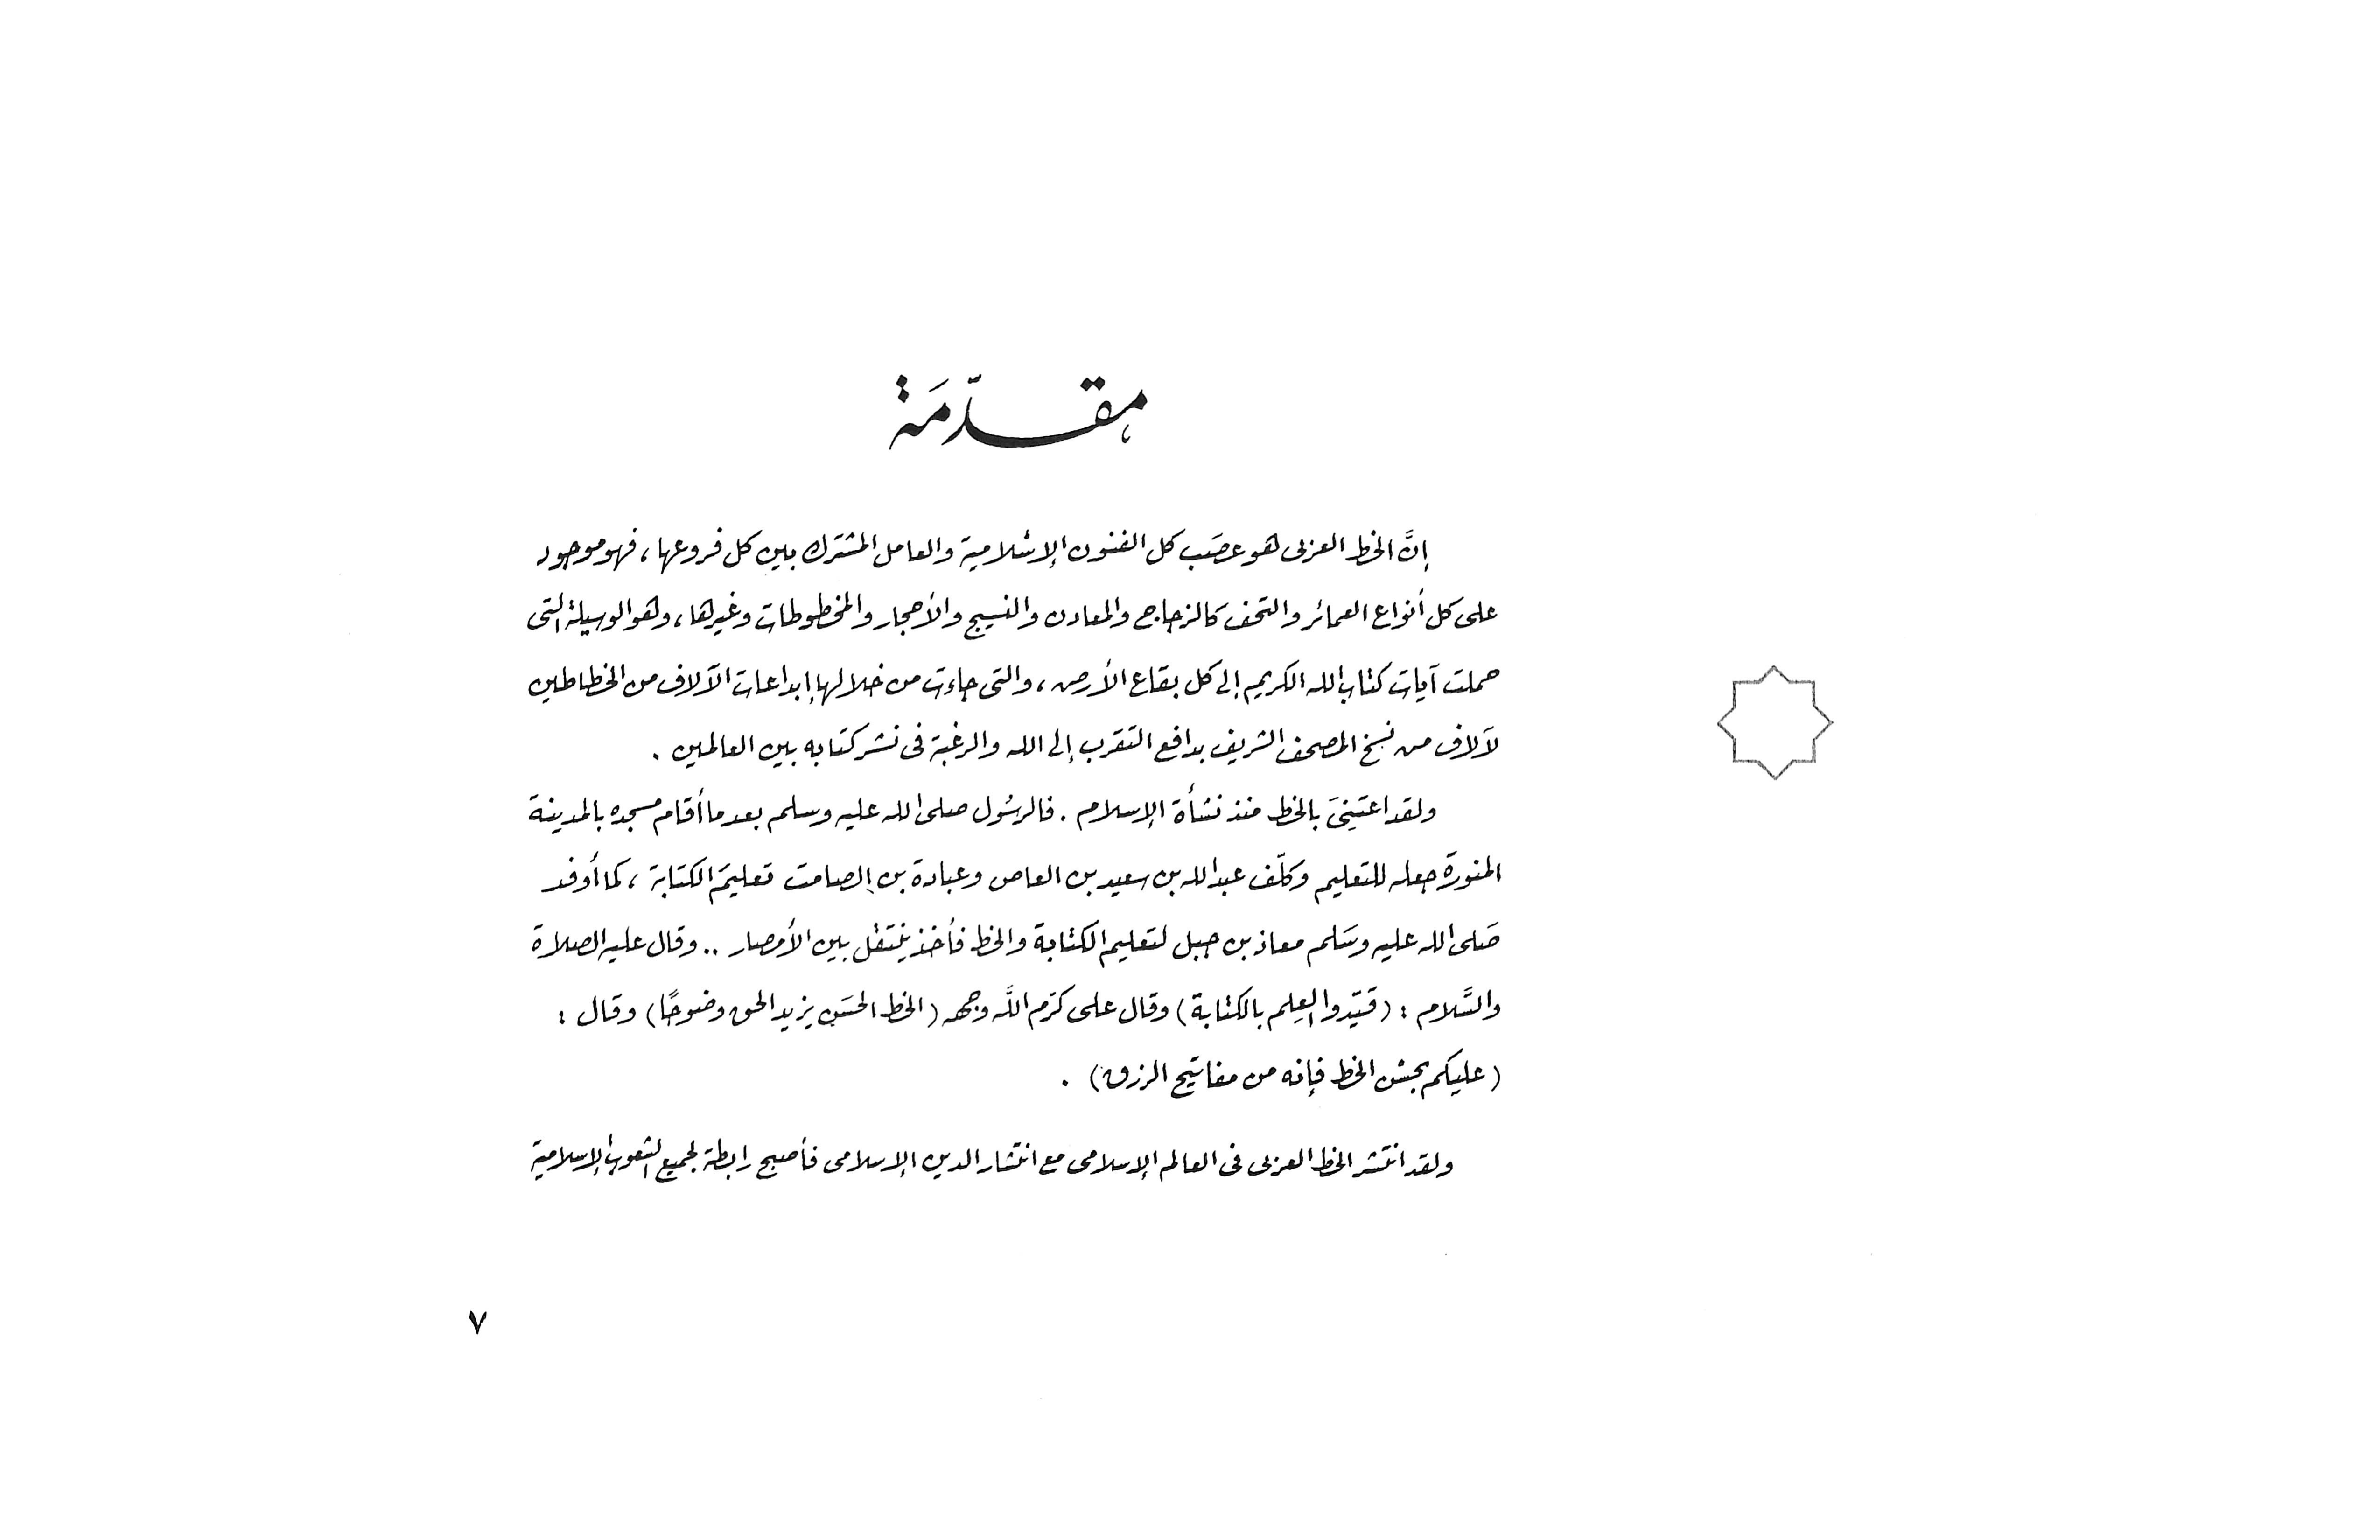 مقدّمَة
إنَّ الخط العربى هو عصَب كل الفنون الإسْلامية والعامل المشترك بين كل فروعها، فهو موجود
على كل أنواع العمائر والتحف كالزجاج والمعادن والنسيج والأحجار والمخطوطات وغيرها، وهو الوسيلة التى
حملت آيات كتاب الله الكريم إلى كل بقاع الأرض، والتى جاءت من خلالها إبداعات الآلاف من الخطاطين
لآلاف من نسخ المصحف الشريف بدافع التقرب إلى الله والرغبة فى نشر كتابه بين العالمين .
ولقد اعتنِىَ بالخط منذ نشأة الإسلام . فالرسُول صلى الله عليه وسلم بعدما أقام مسجده بالمدينة
المنورة جعله للتعليم وكلّف عبد الله بن سعيد بن العاص وعبادة بن الصامت تعليمَ الكتابة، كما أوفد
صَلى الله عليه وسَلم معاذ بن جبل لتعليم الكتابة والخط فأخذ ينتقل بين الأمصار .. وقال عليه الصلاة
والسَّلام : (قيّدوا العِلم بالكتابة) وقال على كرّم اللَّه وجهه (الخط الحسَن يزيد الحق وضوحًا) وقال :
(عليكم بحسْن الخط فإنه من مفاتيح الرزق) .
ولقد انتشر الخط العربى فى العالم الإسلامى مع انتشار الدين الإسلامى فأصبح رابطة لجميع الشعوب الإسلامية
٧